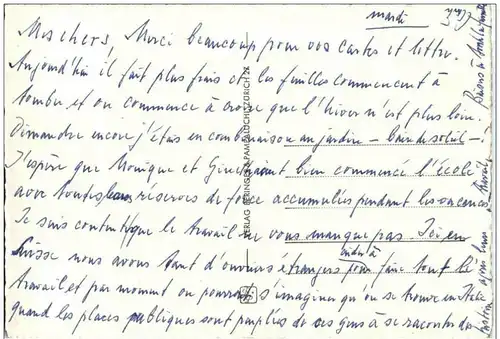 mardi
Mes chers, Merci beaucoup pour vos cartes et lettre.
Aujourd'hui il fait plus frais et les feuilles commencent à
tomber, et on commence à croire que l'hiver n'est plus loin.
Dimanche encore j'étais en combinaison au jardin – bain de soleil – !
J'espère que Monique et aient bien commencé l'école
avec toutes leurs réserves de force accumulées pendant les vacances
Je suis contente que le travail ne vous manque pas. Ici en
Suisse nous avons tant d'ouvriers étrangers pour faire tout le
travail et par moment on pourrait s'imaginer qu'on se trouve en Italie
quand les places publiques sont peuplées de ces gens à se raconter des
VERLAG BERINGER & PAMPALUCHI, ZÜRICH 24